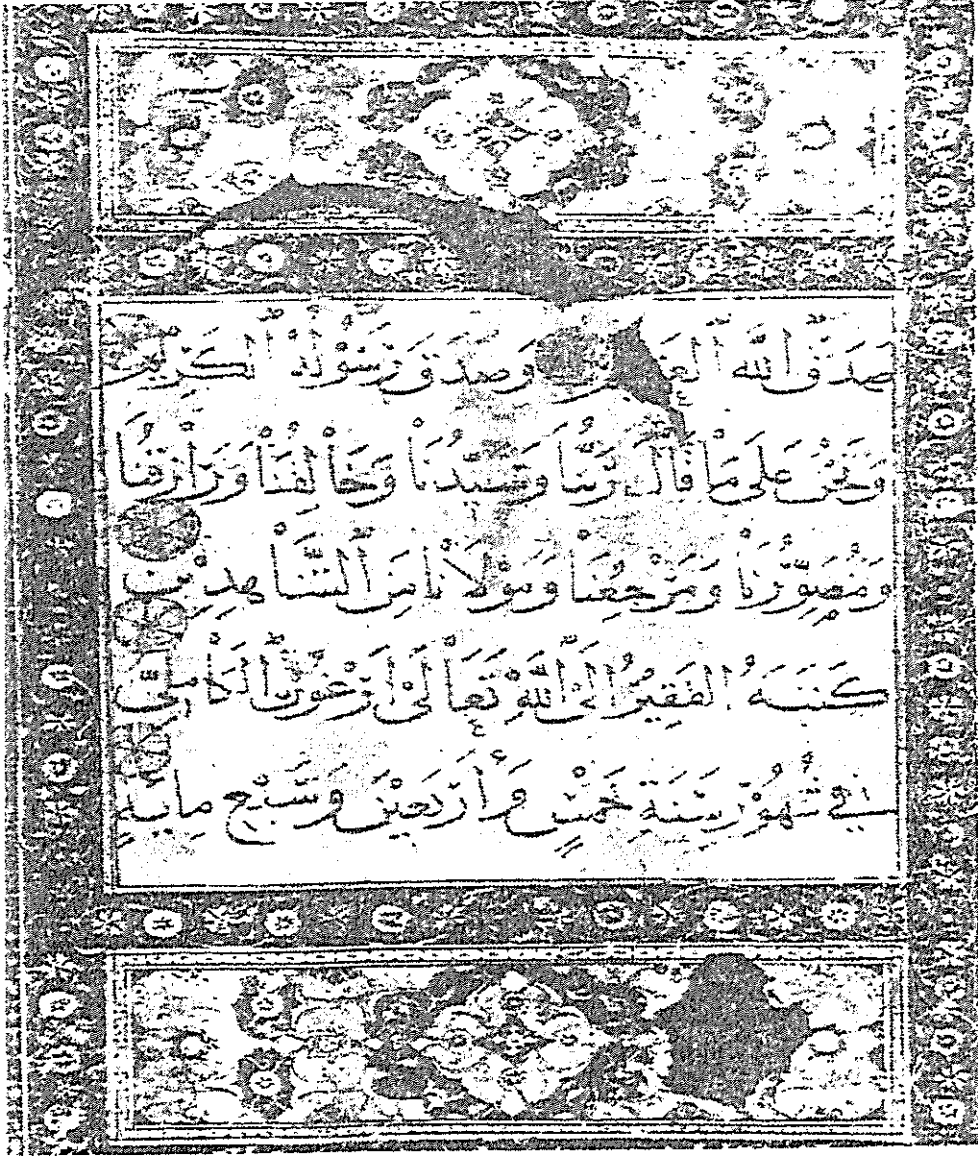 صَدَقَ اللَّهُ الْعَظِيمُ وَصَدَقَ رَسُولُهُ الْكَرِيمُ
وَنَحْنُ عَلَى مَا قَالَ رَبُّنَا وَسَيِّدُنَا وَخَالِقُنَا وَرَازِقُنَا
وَمُصَوِّرُنَا وَمَرْجِعُنَا وَمَوْلَانَا مِنَ الشَّاهِدِينَ
كَتَبَهُ الْفَقِيرُ إِلَى اللَّهِ تَعَالَى أَرْغُونُ الْكَامِلِي
فِي شُهُورِ سَنَةِ خَمْسٍ وَأَرْبَعِينَ وَسَبْعِ مِايَةٍ